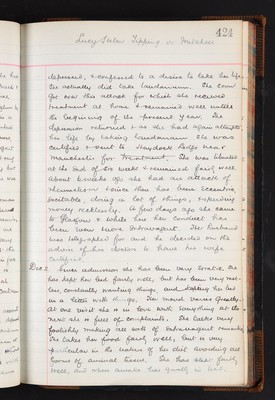 424
Lucy Helen Tipping or Mitchell
depressed, & confessed to a desire to take her life.
She actually did take laudanum. She soon
got over this attack for which she received
treatment at home & remained well until
the beginning of the present year. The
depression returned & as she had again attempted
her life by taking laudanum she was
certified & sent to Haydock Lodge near
Manchester for treatment. She was liberated
at the end of six weeks & remained fairly well
about 6 weeks ago she had an attack of
rheumatism & since then has been eccentric,
excitable, doing a lot of things, & spending
money recklessly. A few days ago she came
to Glasgow & while here her conduct has
been even more extravagant. Her husband
was telegraphed for and he decided on the
advice of his doctors to have his wife
certified.
Dec 2. Since admission she has been very erratic. She
has kept her bed fairly well, but has been very
constantly wanting things, and
in a letter with things. Her mood varies greatly.
At one visit she is in love with everything at the
next she is full of complaints. She talks very
foolishly making all sorts of extravagant remarks.
She takes her food fairly well, but is very
particular in the nature of her diet avoiding all
forms of animal tissue. She has slept fairly
well, and when awake lies quietly in bed.